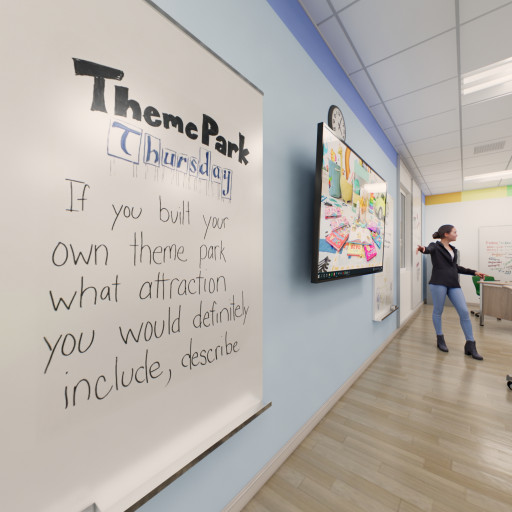 Theme Park
Thursday
If you built your
own theme park
what attraction
you would definitely
include, describe